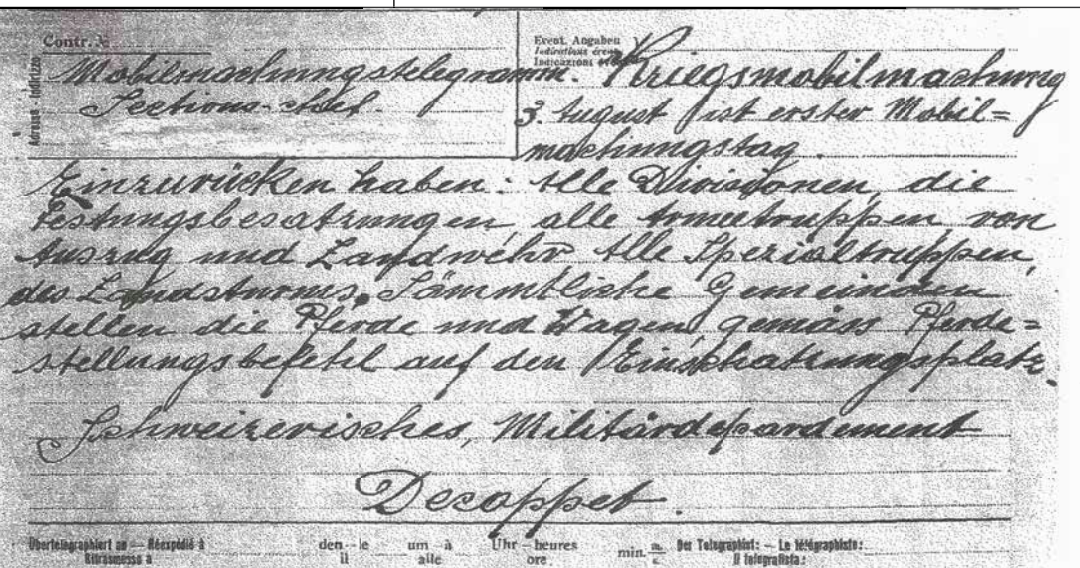 Contr. №
Event. Angaben
Indications évent.
Indicazioni event.
Adresse - Indirizzo
Mobilmachungstelegramm.
Sections-chef.
Kriegsmobilmachung
3. August ist erster Mobil=
machungstag.
Einzurücken haben: Alle Divisionen, die
Festungsbesatzungen, alle Armeetruppen von
Auszug und Landwehr Alle Spezialtruppen
des Landsturms. Sämmtliche Gemeinden
stellen die Pferde und Wagen gemäss Pferde=
stellungsbefehl auf den Einschatzungsplatz.
Schweizerisches, Militärdepardement
Decoppet.
Übertelegraphiert an — Réexpédié à
Ritrasmesso a
den - le
il
um - à
alle
Uhr - heures
ore
min.
Der Telegraphist: — Le télégraphiste:
Il telegrafista: